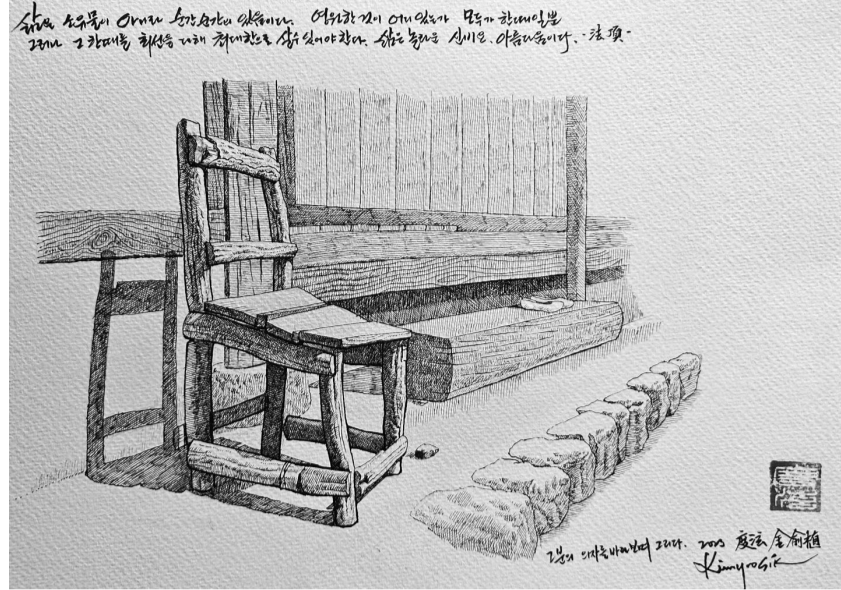 삶은 소유물이 아니라 순간 순간의 있음이다. 영원한 것이 어디 있는가 모두가 한때일 뿐
그러나 그 한때를 최선을 다해 최대한으로 살 수 있어야 한다. 삶은 놀라운 신비요. 아름다움이다. -法頂-
그분의 의자를 바라보며 그리다. 2023 度泫 金俞植
Kimyoosik